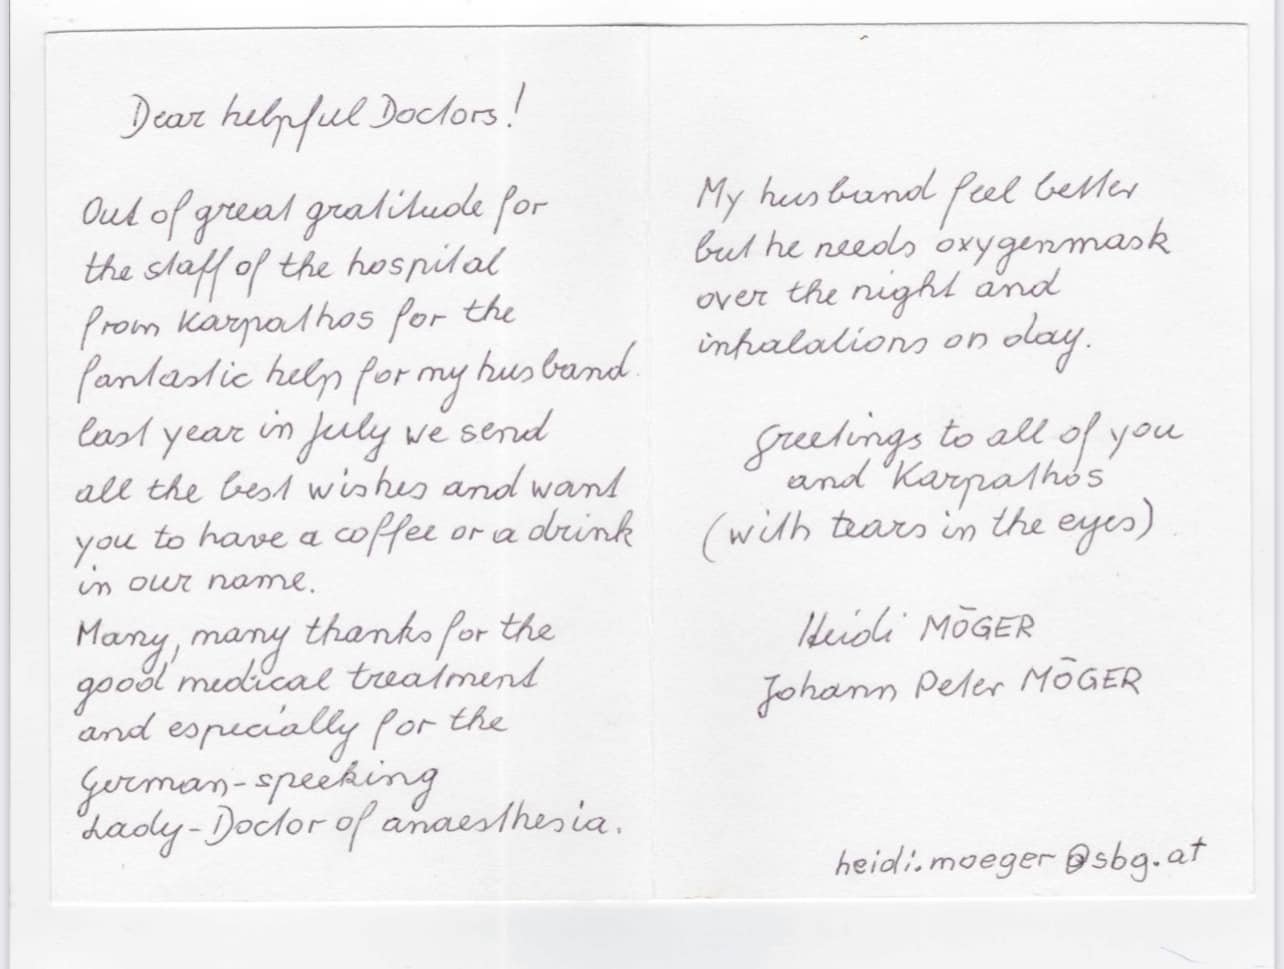 Dear helpful Doctors!
Out of great gratitude for
the staff of the hospital
from Karpathos for the
fantastic help for my husband
last year in July we send
all the best wishes and want
you to have a coffee or a drink
in our name.
Many, many thanks for the
good medical treatment
and especially for the
German-speeking
Lady-Doctor of anaesthesia.
My husband feel better
but he needs oxygenmask
over the night and
inhalations on day.
Greetings to all of you
and Karpathos
(with tears in the eyes)
Heidi MŌGER
Johann Peter MŌGER
heidi.moeger@sbg.at